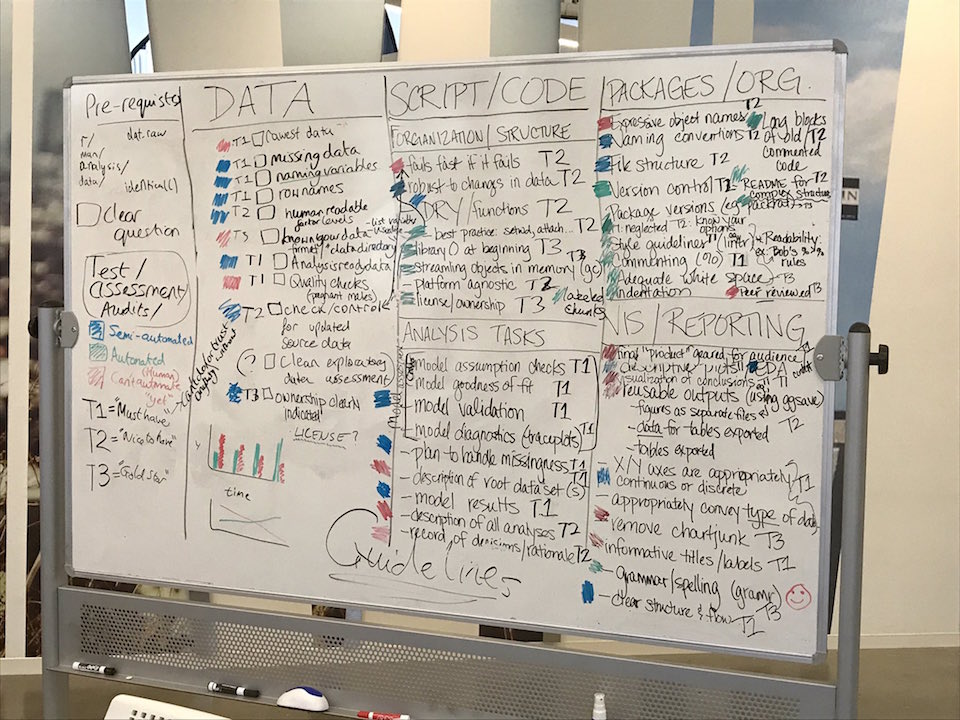 Pre-requists
dat.raw
r/
man/
analysis/
data/
identical()
Clear
question
Test/
assessment
Audits/
Semi-automated
Automated
(Human)
Can't automate
"yet"
T1="Must have"
T2="Nice to have"
T3="Gold star"
DATA
T1 rawest data
T1 missing data
T1 naming variables
T1 row names
T2 human readable
factor levels
T3 known your data
T1 Analysis ready data
T1 Quality checks
(pregnant males)
T2 check/control
for updated
source data
(?) Clean exploratory
data assessment
T3 ownership clearly
indicated
LICENSE?
Y
time
SCRIPT/CODE
ORGANIZATION/STRUCTURE
fails fast if it fails T2
robust to changes in data T2
DRY/functions T2
best practice: setwd, attach... T2
library() at beginning T3
streamlining objects in memory (gc) T3
platform agnostic T2
license/ownership T3
labeled
chunks
ANALYSIS TASKS
- model assumption checks T1
- model goodness of fit T1
- model validation T1
- model diagnostics (traceplots)
- plan to handle missingness T1
- description of root data set(s) T1
- model results T1
- description of all analyses T2
- record of decisions/rationale T2
Guidelines
PACKAGES/ORG.
Expressive object names T2
Naming conventions T2
File structure T2
Version control T1
Package versions (eg packrat) T3
Style guidelines (linter)
Commenting (%) T1
Adequate white space T3
indentation
Long blocks
of old/ T2
commented
code
README for T2
complex structure
T2: know your
options
Readability:
ex: Bob's
rules
Peer reviewed T3
VIS/REPORTING
final "product" geared for audience
descriptive plots/EDA
visualization of conclusions T1
reusable outputs (using ggsave)
- figures as separate files
- data for tables exported T2
- tables exported
X/Y axes are appropriately
continuous or discrete T1
- appropriately convey type of data
remove chartjunk T3
informative titles/labels T1
- grammar/spelling (gramr) T3
- clear structure & flow T1